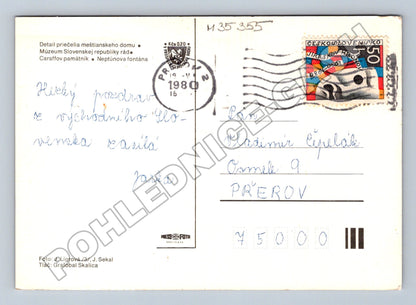 M 35 355
Detail priečelia meštianskeho domu •
Múzeum Slovenskej republiky rád •
Caraffov pamätník • Neptúnova fontána
PREŠOV 2
1980
ČESKOSLOVENSKO
50
Hezký pozdrav
z východního Slo-
venska zasílá
Jarka
Pan
Vladimír Čepelák
Osmek 9
PŘEROV
75000
Foto: J. Ligrová /3/, J. Sekal
Tlač: Grafobal Skalica
POHLEDNICE